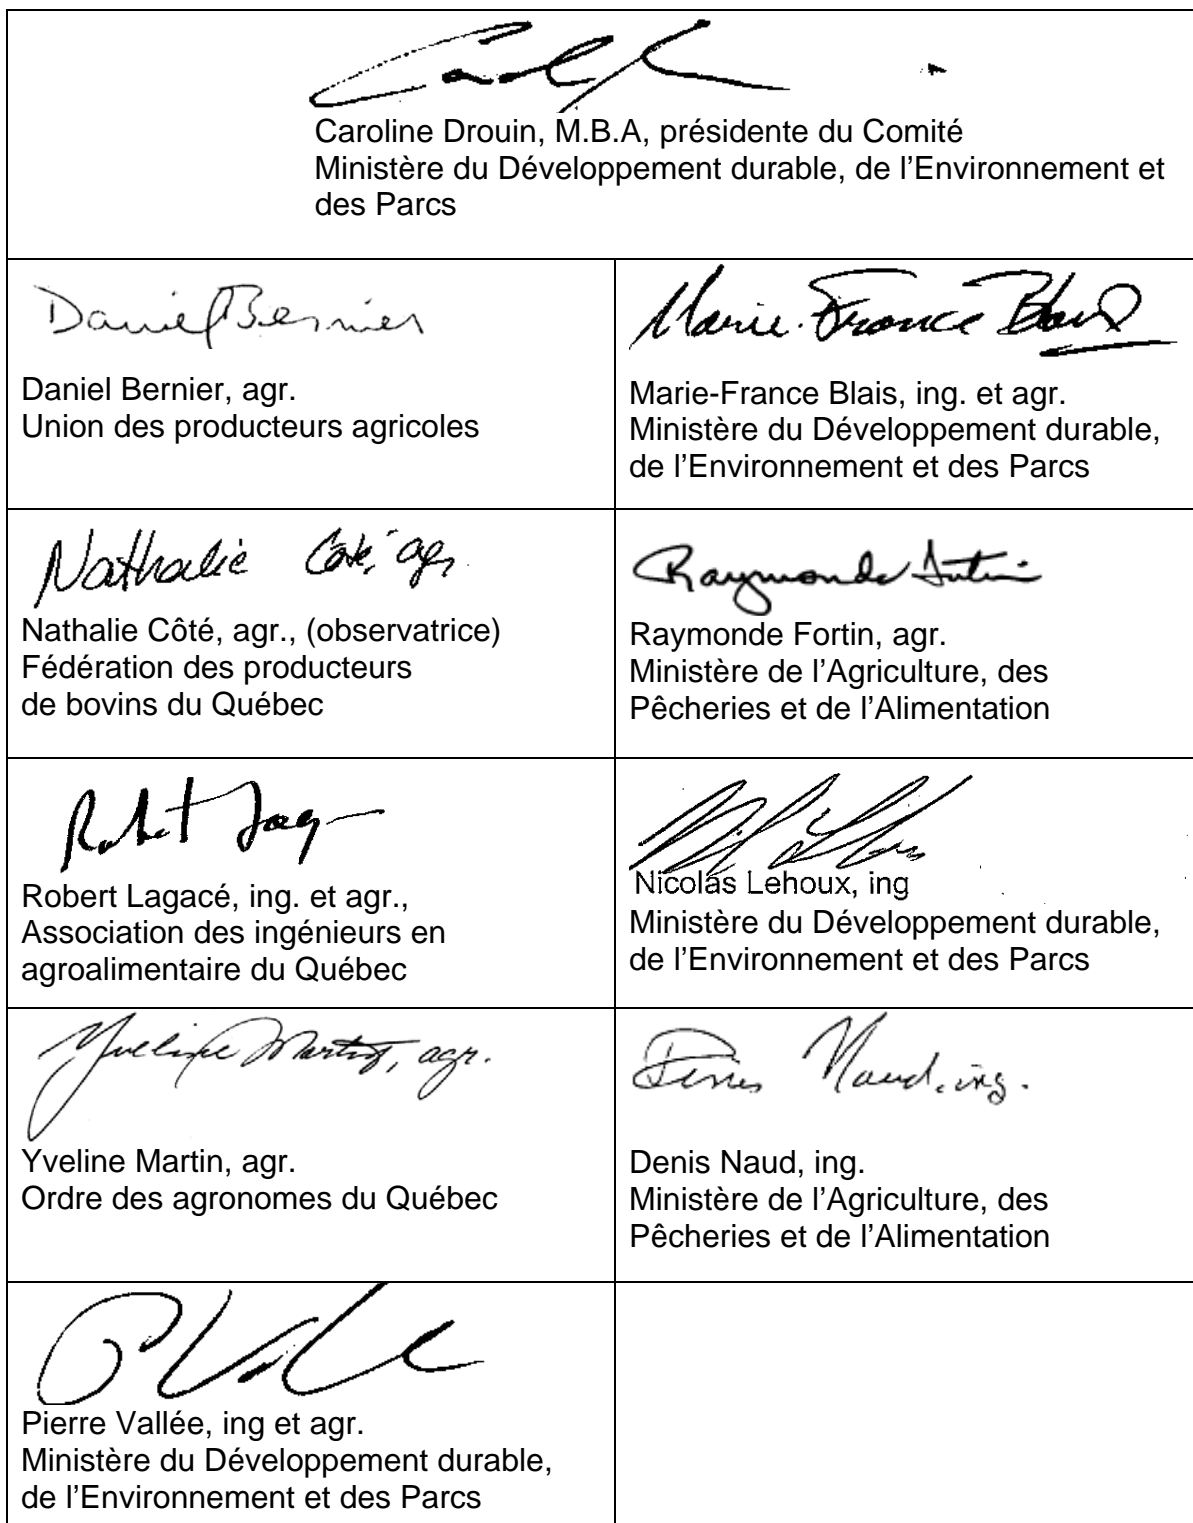 Caroline Drouin, M.B.A, présidente du Comité
Ministère du Développement durable, de l'Environnement et
des Parcs
Daniel Bernier
Daniel Bernier, agr.
Union des producteurs agricoles
Marie-France Blais
Marie-France Blais, ing. et agr.
Ministère du Développement durable,
de l'Environnement et des Parcs
Nathalie Côté, agr.
Nathalie Côté, agr., (observatrice)
Fédération des producteurs
de bovins du Québec
Raymonde Fortin
Raymonde Fortin, agr.
Ministère de l'Agriculture, des
Pêcheries et de l'Alimentation
Robert Lagacé, ing. et agr.,
Association des ingénieurs en
agroalimentaire du Québec
Nicolas Lehoux, ing
Ministère du Développement durable,
de l'Environnement et des Parcs
Yveline Martin, agr.
Yveline Martin, agr.
Ordre des agronomes du Québec
Denis Naud, ing.
Denis Naud, ing.
Ministère de l'Agriculture, des
Pêcheries et de l'Alimentation
Pierre Vallée, ing et agr.
Ministère du Développement durable,
de l'Environnement et des Parcs